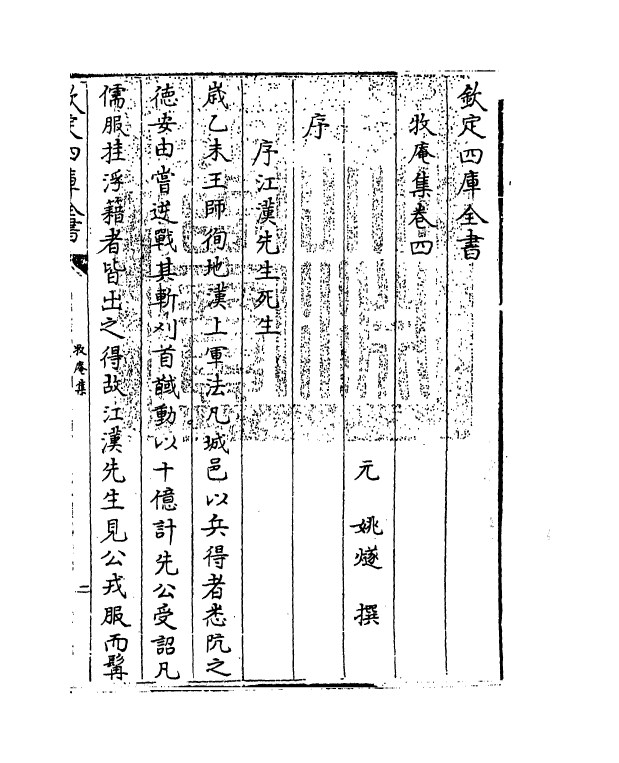 欽定四庫全書
牧庵集卷四
元 姚燧 撰
序
序江漢先生死生
歳乙未王師徇地漢上軍法凡城邑以兵得者悉阬之
徳安由嘗逆戰其斬刈首馘動以十億計先公受詔凡
儒服挂浮籍者皆出之得故江漢先生見公戎服而髯
欽定四庫全書
牧庵集